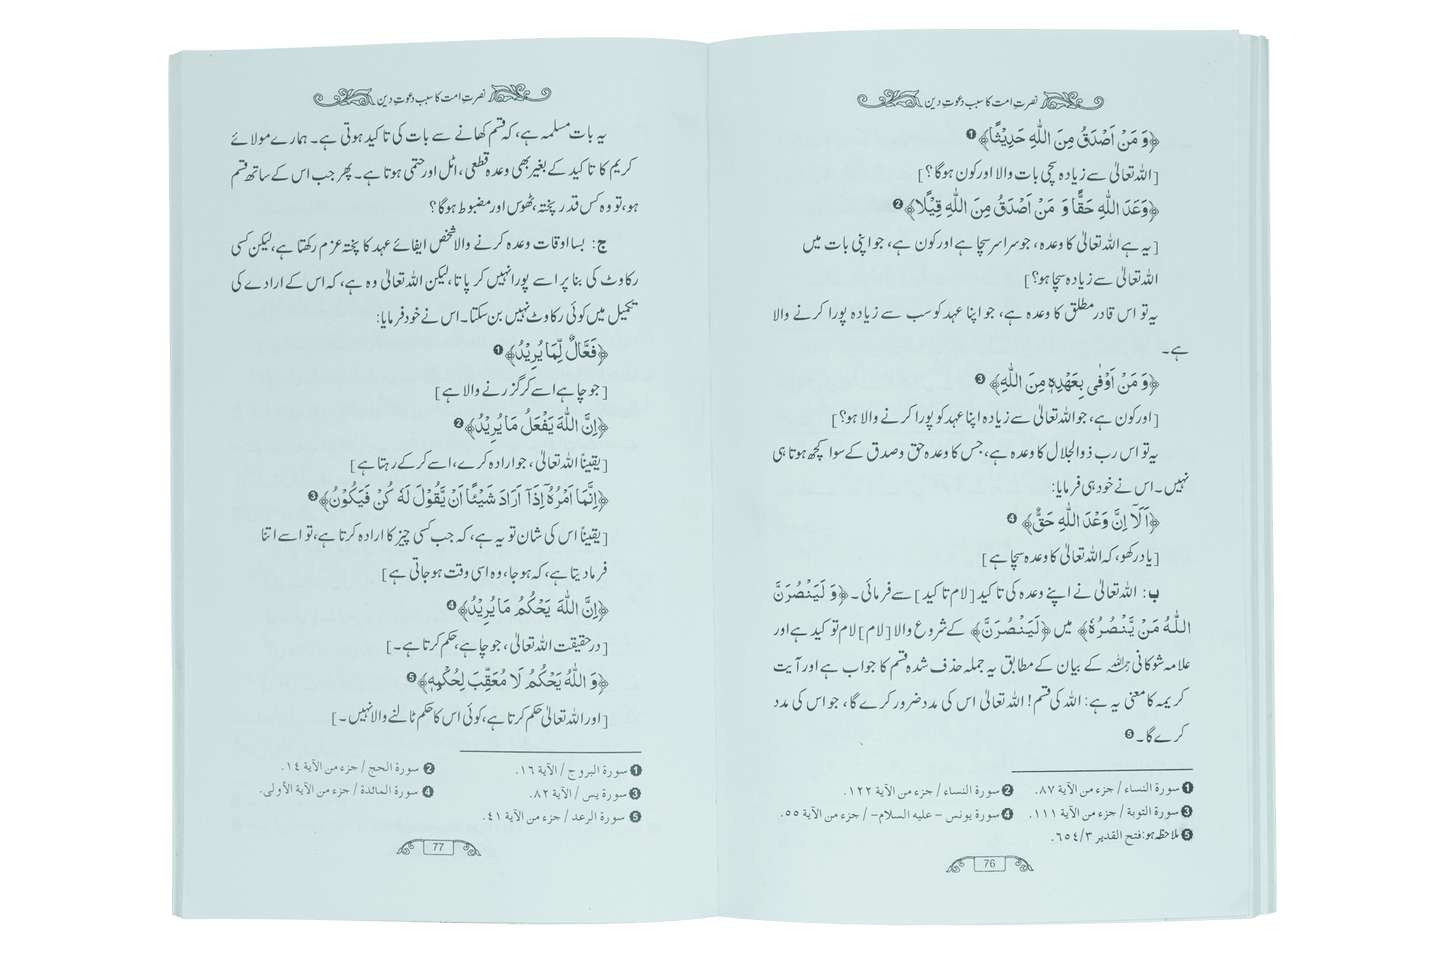 نصرتِ امت کا سبب دعوتِ دین
﴿وَ مَنْ اَصْدَقُ مِنَ اللّٰهِ حَدِيْثًا﴾ ❶
[اللہ تعالیٰ سے زیادہ سچی بات والا اور کون ہوگا؟]
﴿وَعْدَ اللّٰهِ حَقًّا وَ مَنْ اَصْدَقُ مِنَ اللّٰهِ قِيْلًا﴾ ❷
[یہ ہے اللہ تعالیٰ کا وعدہ، جو سراسر سچا ہے اور کون ہے، جو اپنی بات میں
اللہ تعالیٰ سے زیادہ سچا ہو؟]
یہ تو اس قادر مطلق کا وعدہ ہے، جو اپنا عہد کو سب سے زیادہ پورا کرنے والا
ہے۔
﴿وَ مَنْ اَوْفٰى بِعَهْدِهٖ مِنَ اللّٰهِ﴾ ❸
[اور کون ہے، جو اللہ تعالیٰ سے زیادہ اپنا عہد کو پورا کرنے والا ہو؟]
یہ تو اس رب ذوالجلال کا وعدہ ہے، جس کا وعدہ حق و صدق کے سوا کچھ ہوتا ہی
نہیں۔ اس نے خود ہی فرمایا:
﴿اَلَآ اِنَّ وَعْدَ اللّٰهِ حَقٌّ﴾ ❹
[یاد رکھو، کہ اللہ تعالیٰ کا وعدہ سچا ہے]
ب: اللہ تعالیٰ نے اپنے وعدہ کی تاکید [لام تاکید] سے فرمائی۔ ﴿وَ لَيَنْصُرَنَّ
اللّٰهُ مَنْ يَّنْصُرُهٗ﴾ میں ﴿لَيَنْصُرَنَّ﴾ کے شروع والا [لام] لام توکید ہے اور
علامہ شوکانی رحمہ اللہ کے بیان کے مطابق یہ جملہ حذف شدہ قسم کا جواب ہے اور آیت
کریمہ کا معنی یہ ہے: اللہ کی قسم! اللہ تعالیٰ اس کی مدد ضرور کرے گا، جو اس کی مدد
کرے گا۔ ❺
❶ سورة النساء / جزء من الآية ٨٧. ❷ سورة النساء / جزء من الآية ١٢٢.
❸ سورة التوبة / جزء من الآية ١١١. ❹ سورة يونس - عليه السلام- / جزء من الآية ٥٥.
❺ ملاحظہ ہو: فتح القدير ٣/٦٥٤.
76
نصرتِ امت کا سبب دعوتِ دین
یہ بات مسلمہ ہے، کہ قسم کھانے سے بات کی تاکید ہوتی ہے۔ ہمارے مولائے
کریم کا تاکید کے بغیر بھی وعدہ قطعی، اٹل اور حتمی ہوتا ہے۔ پھر جب اس کے ساتھ قسم
ہو، تو وہ کس قدر پختہ، ٹھوس اور مضبوط ہوگا؟
ج: بسا اوقات وعدہ کرنے والا شخص ایفائے عہد کا پختہ عزم رکھتا ہے، لیکن کسی
رکاوٹ کی بنا پر اسے پورا نہیں کر پاتا، لیکن اللہ تعالیٰ وہ ہے، کہ اس کے ارادے کی
تکمیل میں کوئی رکاوٹ نہیں بن سکتا۔ اس نے خود فرمایا:
﴿فَعَّالٌ لِّمَا يُرِيْدُ﴾ ❶
[جو چاہے اسے کر گزرنے والا ہے]
﴿اِنَّ اللّٰهَ يَفْعَلُ مَا يُرِيْدُ﴾ ❷
[یقیناً اللہ تعالیٰ، جو ارادہ کرے، اسے کر کے رہتا ہے]
﴿اِنَّمَآ اَمْرُهٗٓ اِذَآ اَرَادَ شَيْئًا اَنْ يَّقُوْلَ لَهٗ كُنْ فَيَكُوْنُ﴾ ❸
[یقیناً اس کی شان تو یہ ہے، کہ جب کسی چیز کا ارادہ کرتا ہے، تو اسے اتنا
فرما دیتا ہے، کہ ہو جا، وہ اسی وقت ہو جاتی ہے]
﴿اِنَّ اللّٰهَ يَحْكُمُ مَا يُرِيْدُ﴾ ❹
[درحقیقت اللہ تعالیٰ، جو چاہے، حکم کرتا ہے۔]
﴿وَ اللّٰهُ يَحْكُمُ لَا مُعَقِّبَ لِحُكْمِهٖ﴾ ❺
[اور اللہ تعالیٰ حکم کرتا ہے، کوئی اس کا حکم ٹالنے والا نہیں۔]
❶ سورة البروج / الآية ١٦. ❷ سورة الحج / جزء من الآية ١٤.
❸ سورة يس / الآية ٨٢. ❹ سورة المائدة / جزء من الآية الأولى.
❺ سورة الرعد / جزء من الآية ٤١.
77